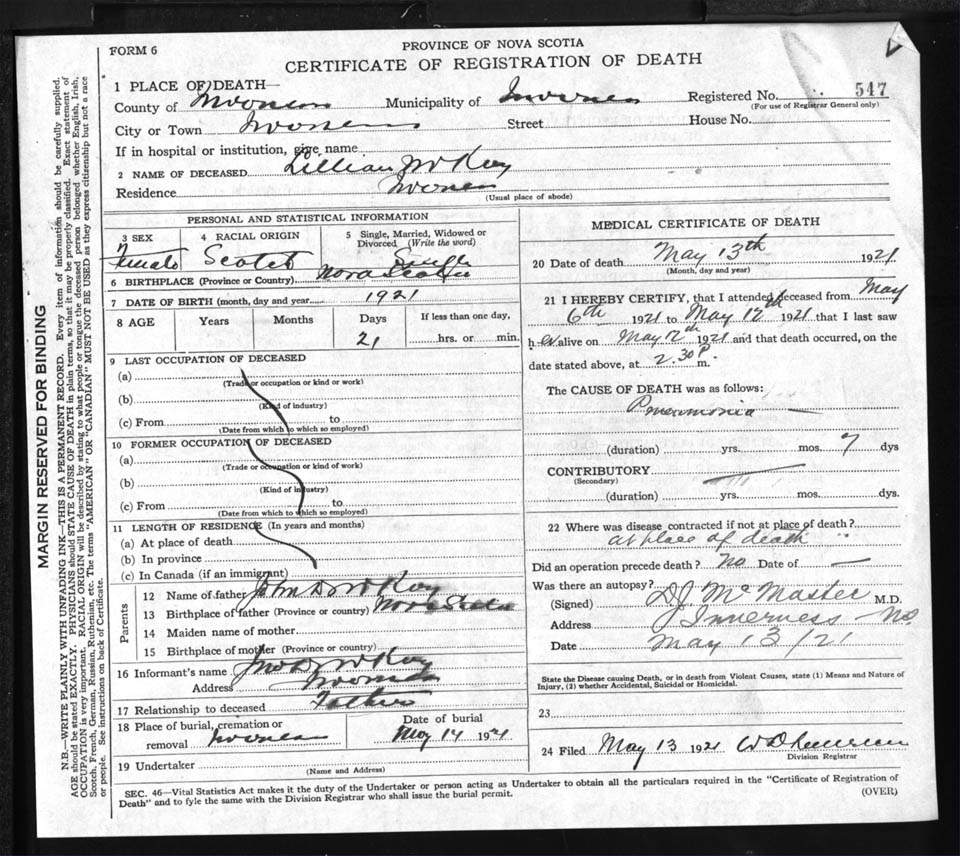 FORM 6
PROVINCE OF NOVA SCOTIA
CERTIFICATE OF REGISTRATION OF DEATH
1 PLACE OF DEATH—
County of Municipality of Inverness Registered No. 547
(For use of Registrar General only)
City or Town Inverness Street House No.
If in hospital or institution, give name
2 NAME OF DECEASED Lillian
Residence Inverness
(Usual place of abode)
PERSONAL AND STATISTICAL INFORMATION
3 SEX 4 RACIAL ORIGIN 5 Single, Married, Widowed or Divorced (Write the word)
Female Scotch Single
6 BIRTHPLACE (Province or Country) Nova Scotia
7 DATE OF BIRTH (month, day and year 1921
8 AGE Years Months Days If less than one day,
21 hrs. or min.
9 LAST OCCUPATION OF DECEASED
(a)
(Trade or occupation or kind or work)
(b)
(Kind of industry)
(c) From to
(Date from which to which so employed)
10 FORMER OCCUPATION OF DECEASED
(a)
(Trade or occupation or kind of work)
(b)
(Kind of industry)
(c) From to
(Date from which to which so employed)
11 LENGTH OF RESIDENCE (In years and months)
(a) At place of death
(b) In province
(c) In Canada (if an immigrant)
Parents
12 Name of father John D
13 Birthplace of father (Province or country) Nova Scotia
14 Maiden name of mother
15 Birthplace of mother (Province or country)
16 Informant's name
Address Inverness
17 Relationship to deceased Father
18 Place of burial, cremation or removal Inverness Date of burial May 14 1921
19 Undertaker
(Name and Address)
MEDICAL CERTIFICATE OF DEATH
20 Date of death May 13th 1921
(Month, day and year)
21 I HEREBY CERTIFY, that I attended deceased from May
6th 1921 to May 12th 1921 that I last saw
h er alive on May 12th 1921 and that death occurred, on the
date stated above, at 2.30 P. m.
The CAUSE OF DEATH was as follows:
Pneumonia
(duration) yrs. mos. 7 dys
CONTRIBUTORY
(Secondary)
(duration) yrs. mos. dys.
22 Where was disease contracted if not at place of death?
at place of death
Did an operation precede death? No Date of —
Was there an autopsy?
(Signed) D.J. McMaster M.D.
Address Inverness
Date May 13/21
State the Disease causing Death, or in death from Violent Causes, state (1) Means and Nature of
Injury, (2) whether Accidental, Suicidal or Homicidal.
23
24 Filed May 13 1921
Division Registrar
SEC. 46—Vital Statistics Act makes it the duty of the Undertaker or person acting as Undertaker to obtain all the particulars required in the "Certificate of Registration of
Death" and to fyle the same with the Division Registrar who shall issue the burial permit. (OVER)
MARGIN RESERVED FOR BINDING
N.B.—WRITE PLAINLY WITH UNFADING INK—THIS IS A PERMANENT RECORD. Every item of information should be carefully supplied.
AGE should be stated EXACTLY. PHYSICIANS should STATE CAUSE OF DEATH in plain terms, so that it may be properly classified. Exact statement of
OCCUPATION is very important. RACIAL ORIGIN will be described by stating to what people or tongue the deceased person belonged whether English, Irish,
Scotch, French, German, Russian, Ruthenian, etc. The terms "AMERICAN" OR "CANADIAN" MUST NOT BE USED as they express citizenship but not a race
or people. See instructions on back of Certificate.